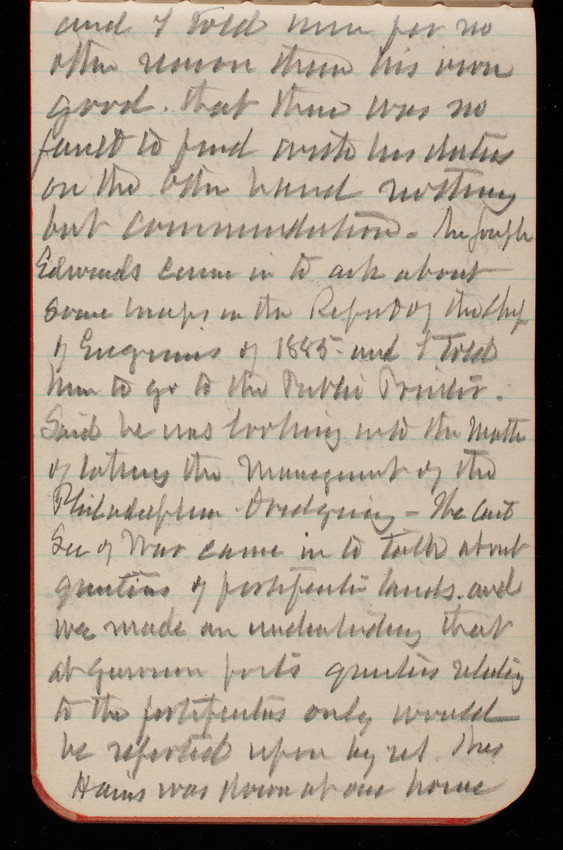 and I told him for no
other reason than his own
good. that there was no
fault to find with his duties
on the other hand nothing
but commendation - Mr Joseph
Edwards came in to ask about
some maps in the Report of the Chief
of Engineers of 1885 and I told
him to go to the Public Printer.
Said he was looking into the matter
of the management of the
Philadelphia Dredging - The
Sec of War came in to talk about
questions of lands. and
we made an understanding that
at Garrison posts questions relating
to the only would
be reported upon by
Hains was down at our house